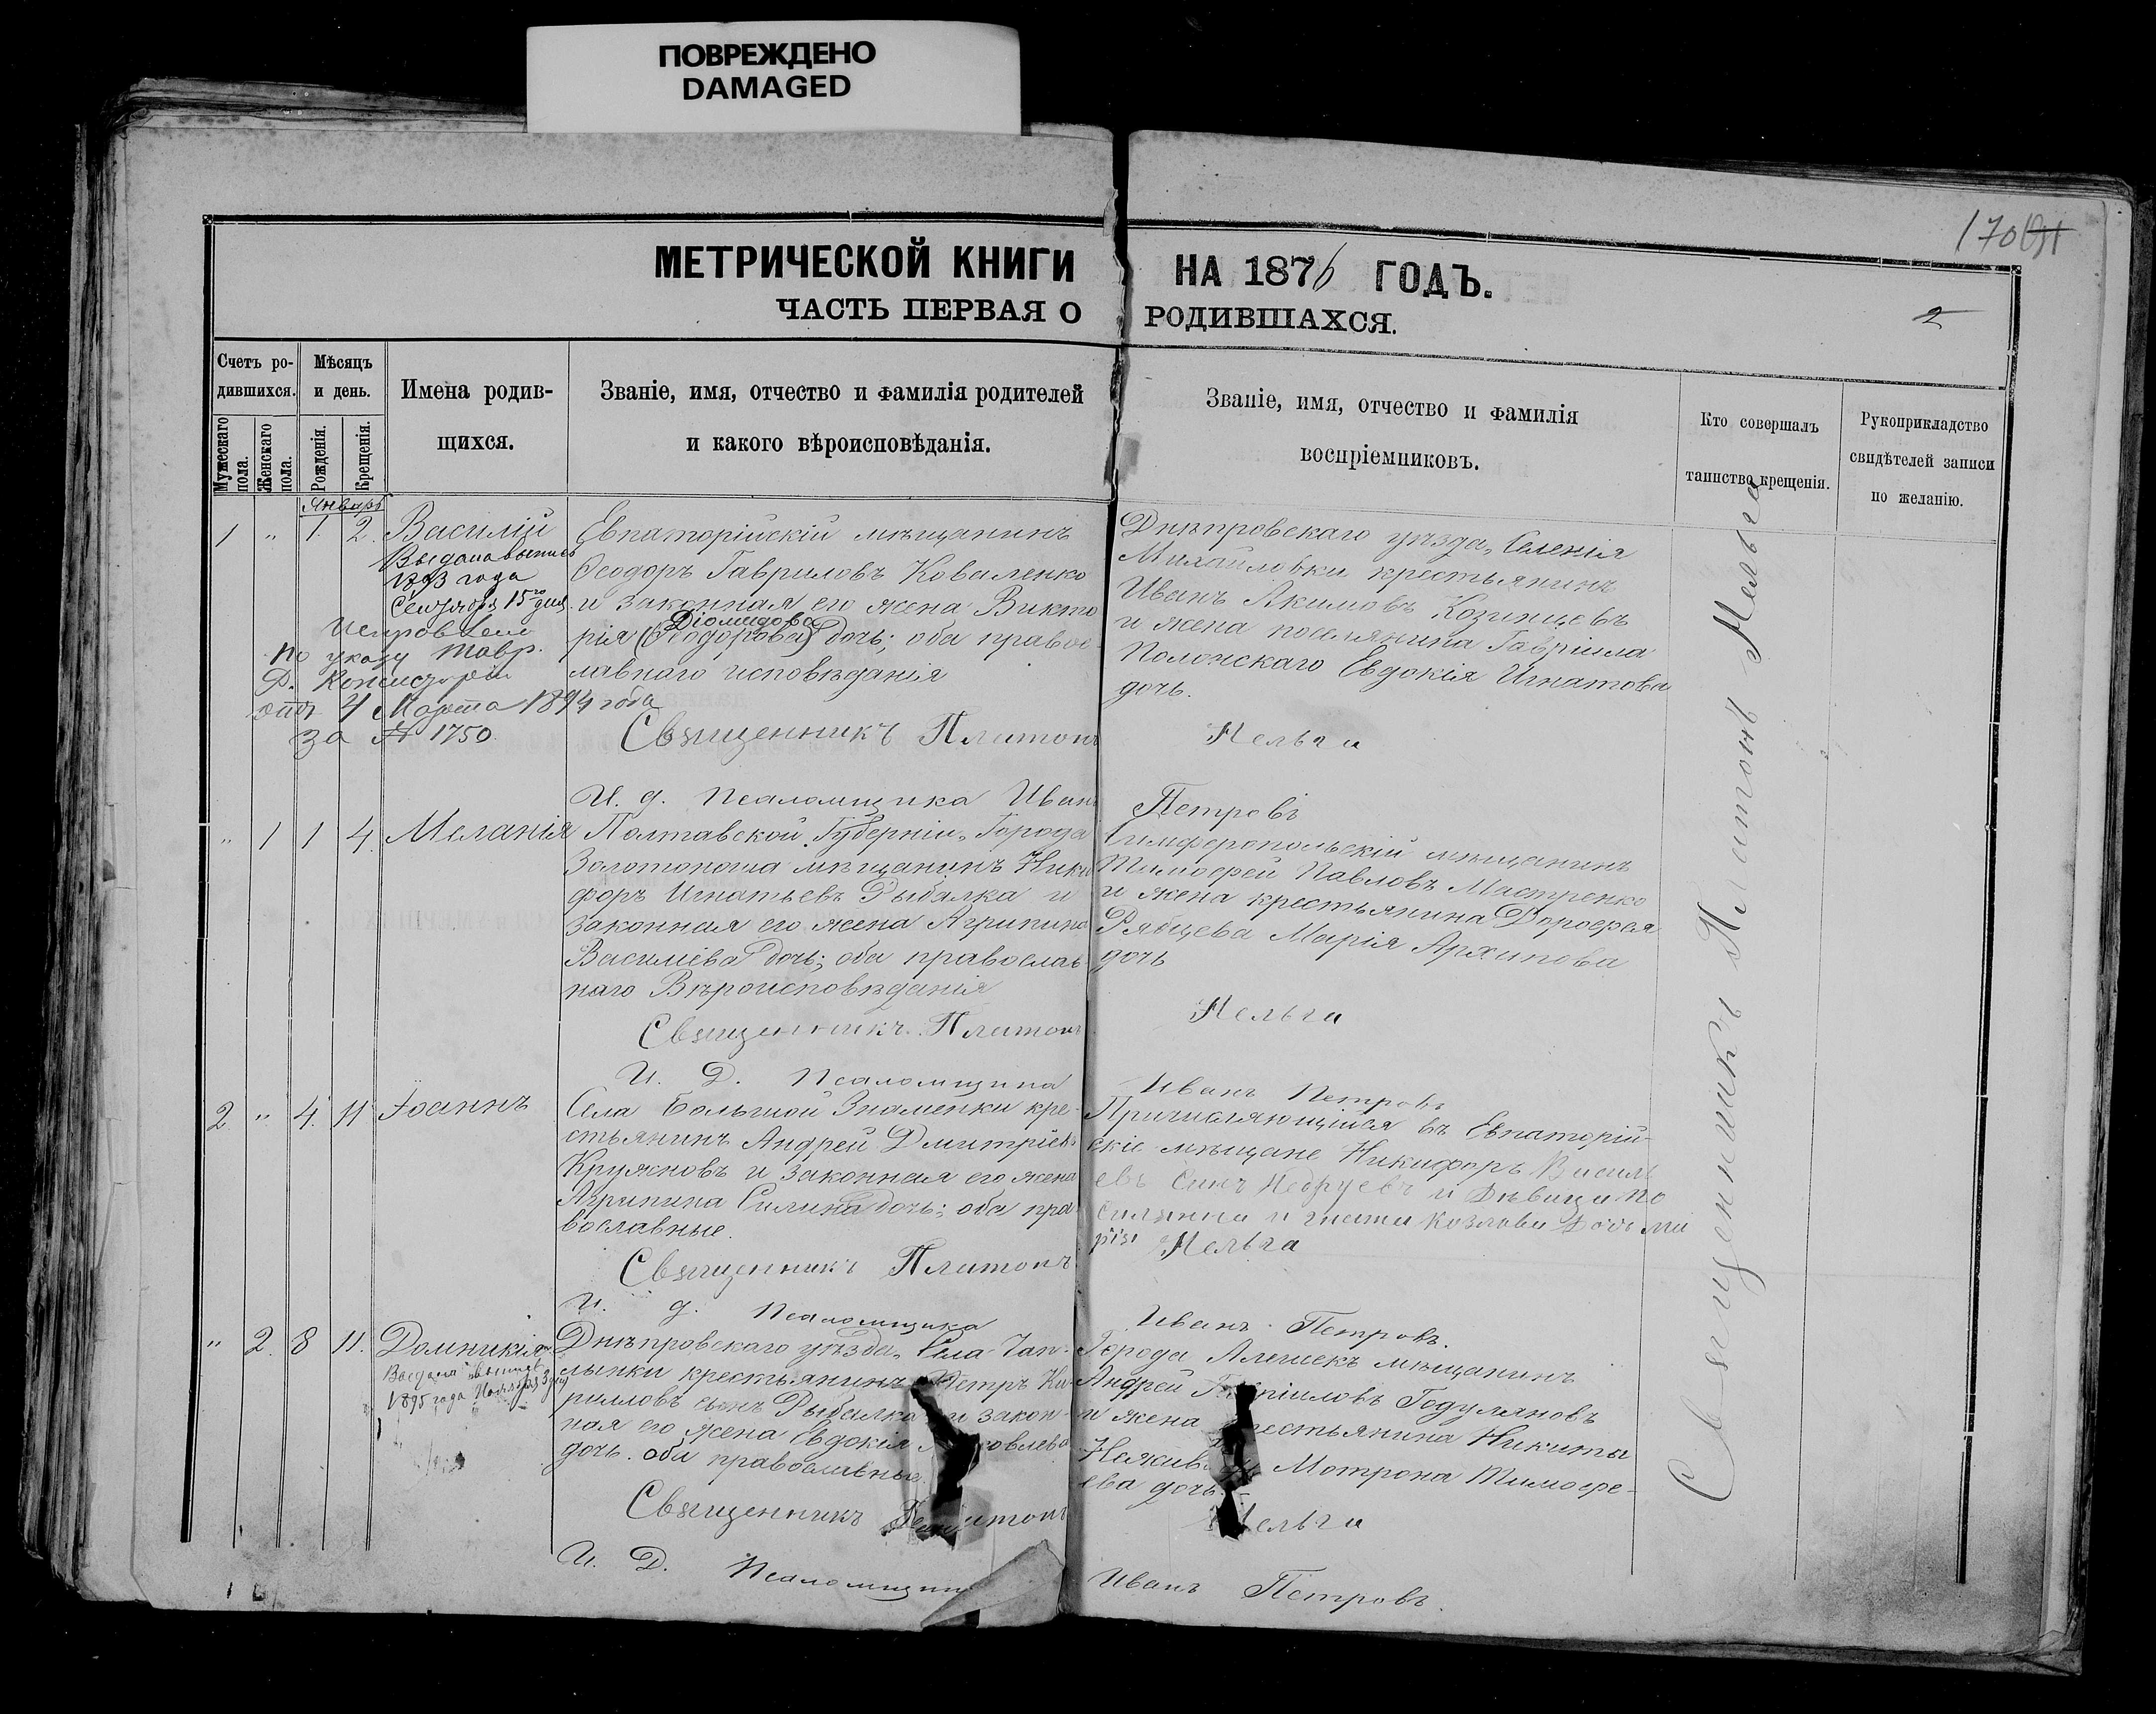 ПОВРЕЖДЕНО
DAMAGED
170
МЕТРИЧЕСКОЙ КНИГИ НА 1876 ГОДЪ.
ЧАСТЬ ПЕРВАЯ О РОДИВШАХСЯ.
2
Счетъ ро-
дившихся.
Мужескаго пола.
Женскаго пола.
Мѣсяцъ
и день.
Рожденія.
Крещенія.
Имена родив-
щихся.
Званіе, имя, отчество и фамилія родителей
и какого вѣроисповѣданія.
Званіе, имя, отчество и фамилія
воспріемниковъ.
Кто совершалъ
таинство крещенія.
Рукоприкладство
свидѣтелей записи
по желанію.
Январь
1 " 1. 2. Василій
Выдана выпись
1893 года
Сентября 15го дня.
Исправлено
по указу Тавр.
Д. Консисторіи
отъ 4 Марта 1894 года
за № 1750
Евпаторійскій мѣщанинъ
Ѳеодоръ Гавриловъ Коваленко
и законная его жена Викто
Діомидова
рія (Ѳеодорова) дочь; оба правос-
лавнаго исповѣданія
Днѣпровскаго уѣзда, Селенія
Михайловки крестьянинъ
Иванъ Акимовъ Козинцевъ
и жена поселянина Гавріила
Полонскаго Евдокія Игнатова
дочь.
Священникъ Платонъ Нельга
И. д. Псаломщика Иванъ Петровъ
" 1 1 4. Меланія
Полтавской Губерніи, Города
Золотоноша мѣщанинъ Ники
форъ Игнатьевъ Рыбалка и
законная его жена Агрипина
Василіева дочь; оба православ
наго Вѣроисповѣданія
Симферопольскій мѣщанинъ
Тимофей Павловъ Мастренко
и жена крестьянина Дорофея
Рябцева Марія Архипова
дочь
Священникъ Платонъ Нельга
И. Д. Псаломщика Иванъ Петровъ
2 " 4. 11 Іоаннъ
Села Большой Знаменки кре-
стьянинъ Андрей Дмитріевъ
Кружновъ и законная его жена
Агрипина Силина дочь; оба пра
вославные.
Причисляющійся въ Евпаторій-
скіе мѣщане Никифоръ Василь
евъ Сынъ и Дѣвица по
Козлова Дочь Ма
рія
Священникъ Платонъ Нельга
И. д. Псаломщика Иванъ Петровъ.
" 2. 8 11. Домникія
Выдана выпись
1895 года Ноября 3 дня
Днѣпровскаго уѣзда, Села Чап-
лынки крестьянинъ Петръ Ки-
рилловъ сынъ Рыбалка и закон-
ная его жена Евдокія Яковлева
дочь. оба православные.
Города Алешекъ мѣщанинъ
Андрей Гавріиловъ Годуляновъ
и жена крестьянина Никиты
Мотрона Тимофе-
ева дочь.
Священникъ Платонъ Нельга
И. Д. Псаломщика Иванъ Петровъ.
Священникъ Платонъ Нельга